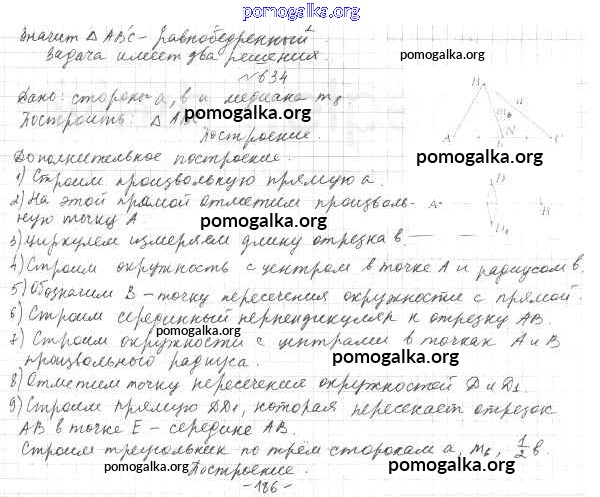 pomogalka.org
Значит △ABC – равнобедренный.
Задача имеет два решения.
pomogalka.org
№634
Дано: стороны a, b и медиана m_b
pomogalka.org
Построить: △ABC
Построение.
B a m_b N A E C
pomogalka.org
Дополнительное построение.
1) Строим произвольную прямую a.
2) На этой прямой отметим произволь-
ную точку A.
A D B D₁
pomogalka.org
3) Циркулем измеряем длину отрезка b.
pomogalka.org
4) Строим окружность с центром в точке A и радиусом b.
5) Обозначим B – точку пересечения окружности с прямой.
6) Строим серединный перпендикуляр к отрезку AB.
pomogalka.org
7) Строим окружности с центрами в точках A и B
произвольного радиуса.
pomogalka.org
8) Отметим точку пересечения окружностей D и D₁.
pomogalka.org
9) Строим прямую DD₁, которая пересекает отрезок
AB в точке E – середине AB.
pomogalka.org
Строим треугольник по трём сторонам a, m_b, 1/2 b.
pomogalka.org
Построение.
pomogalka.org
-186-
pomogalka.org